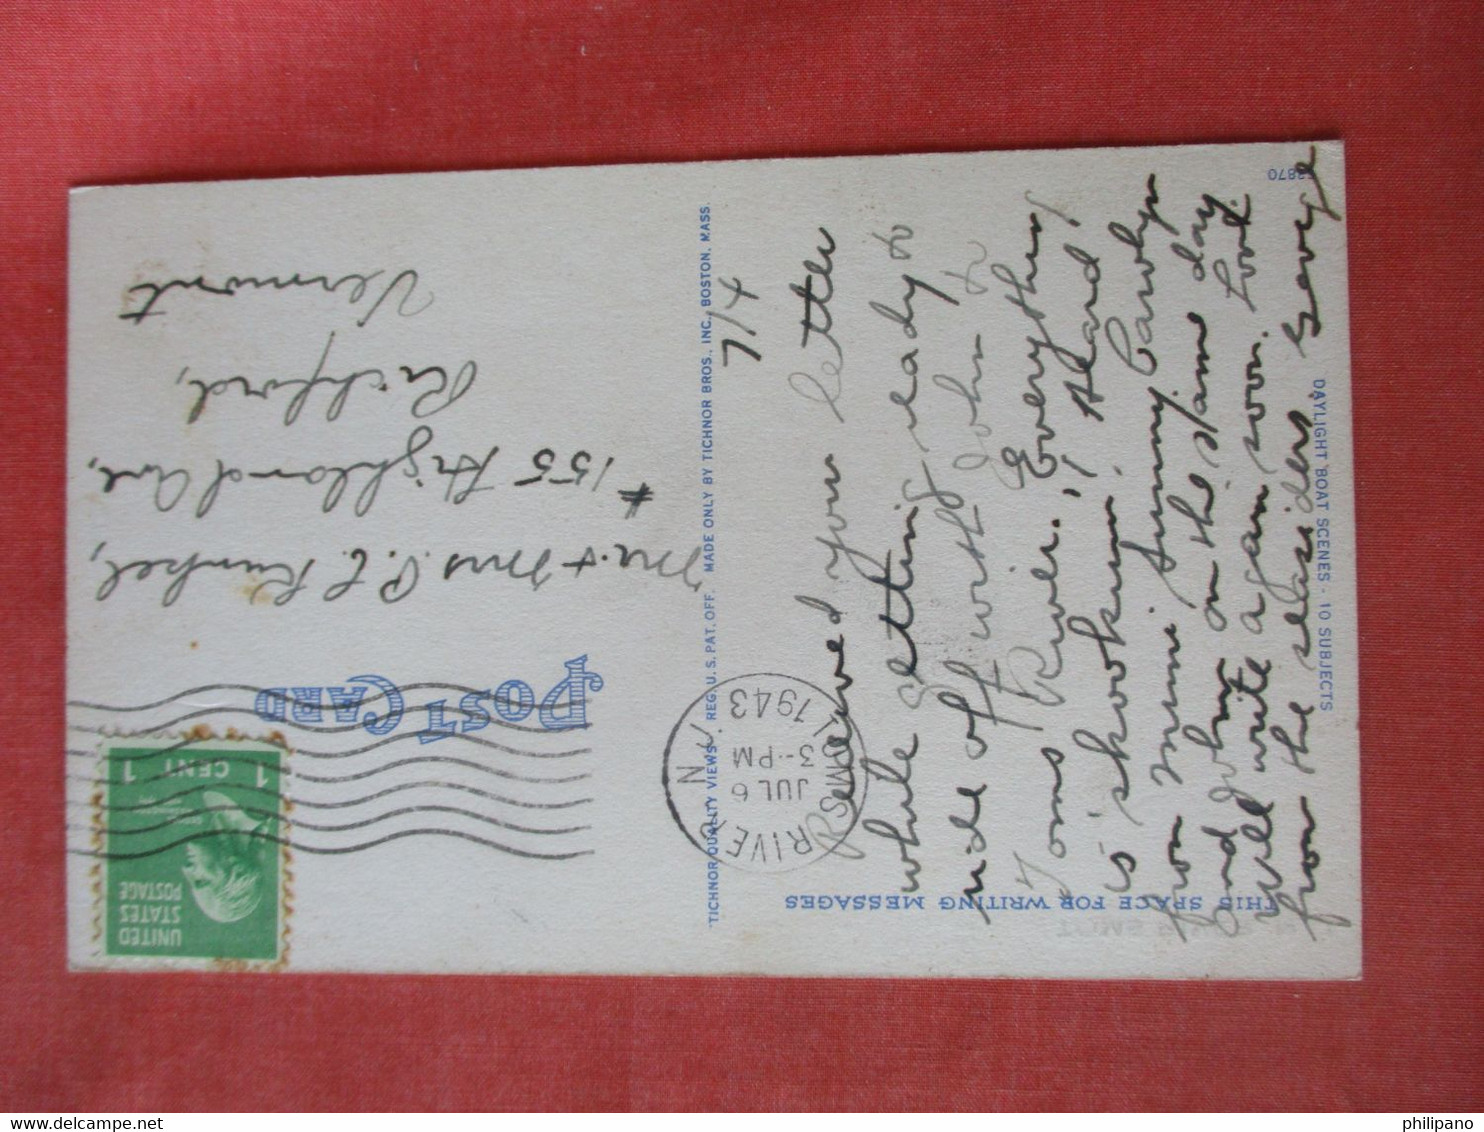 THIS SPACE FOR WRITING MESSAGES
7/4
Received your letter
while getting ready to
ride off with John to
Toms River. Everything
is shookum. Heard
from Mimi Aunny Carolyn
and John on the same day
Will write again soon. Look
from the seasiders George
POST CARD
Mr. & Mrs P. C. Kunkel,
# 155 Highland Ave,
Richford,
Vermont
UNITED
STATES
POSTAGE
1 CENT 1
TOMS RIVER
JUL 6
3-PM
1943
N.J.
TICHNOR QUALITY VIEWS, REG. U. S. PAT. OFF. MADE ONLY BY TICHNOR BROS., INC., BOSTON, MASS.
DAYLIGHT BOAT SCENES - 10 SUBJECTS
philipano